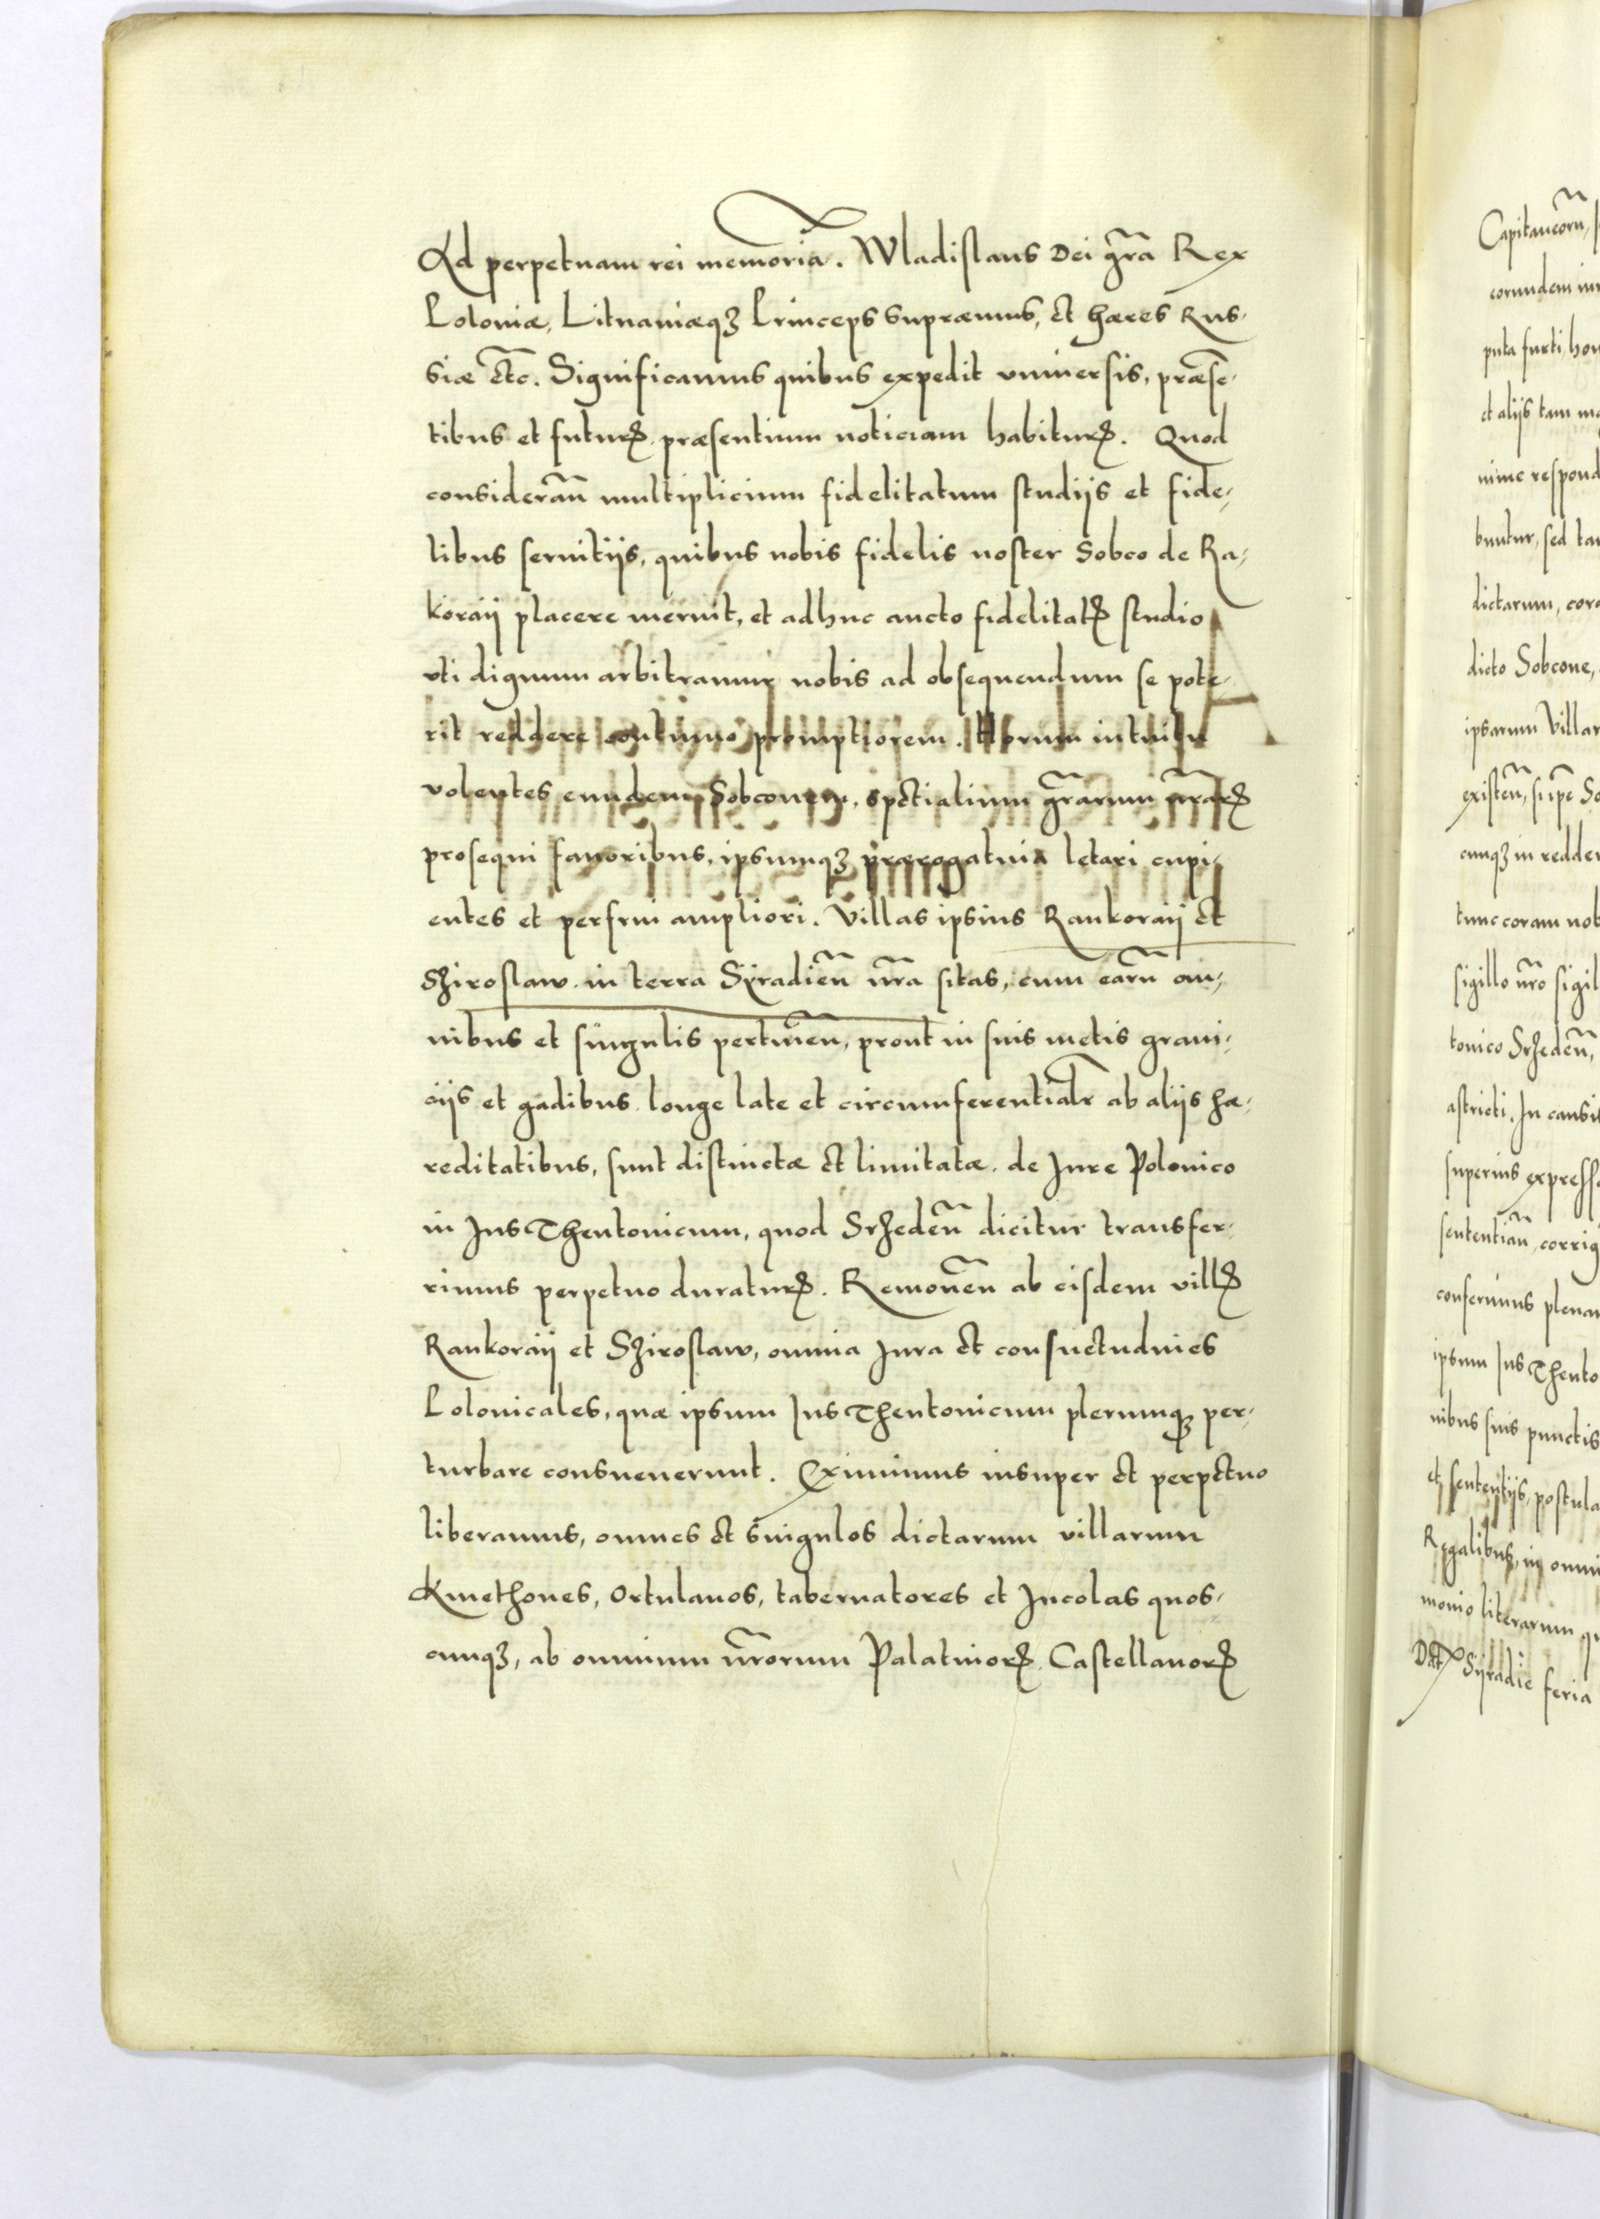 Ad perpetuam rei memoriã. Wladislaus Dei gr̃a Rex
Poloniæ, Lituaniæq3 Princeps supræmus, et hæres Rus-
siæ etc̃. Significamus quibus expedit vniuersis, præsẽ-
tibus et futurꝭ præsentium noticiam habiturꝭ. Quod
considerañ multiplicium fidelitatum studijs et fide-
libus seruitijs, quibus nobis fidelis noster Sobco de Ra-
koraij placere meruit, et adhuc aucto fidelitatꝭ studio
vti dignum arbitramur nobis ad obsequendum se pote-
rit reddere continuo promptiorem. Horum intuitu
volentes eundem Sobconem, spetialium gr̃arum nr̃arꝭ
prosequi fauoribus, ipsumq3 prærogatiua letari cupi-
entes et perfrui ampliori. Villas ipsius Rankoraij et
Shiroslaw in terra Syradieñ nr̃a sitas, cum earũ om-
nibus et singulis pertineñ, prout in suis metis grani-
cijs et gadibus longe late et circumferentialr̃ ab alijs hæ-
reditatibus, sunt distinctæ et limitatæ, de Jure Polonico
in Jus Theutonicum, quod Srzedeñ dicitur transfer-
rimus perpetuo duraturꝭ. Remoueñ ab eisdem villꝭ
Rankoraij et Shiroslaw, omnia Jura et consuetudines
Polonicales, quæ ipsum Jus Theutonicum plerumq3 per-
turbare consueuerunt. Eximimus insuper et perpetuo
liberamus, omnes et singulos dictarum villarum
Kmethones, Ortulanos, tabernatores et Incolas quos-
cunq3, ab omnium nr̃orum Palatinorꝭ Castellanorꝭ
Capitaneorũ,
eorundem
puta furti, hom
et alijs tam ma
nime respond
buntur, sed ta
dictarum, cora
dicto Sobcone,
ipsarum Villar
existeñ, sup̃e So
cunq3 in redde
tunc coram nob
sigillo nr̃o sigil
tonico Srzedeñ,
astricti. In causis
superius express
sententiañ, corrig
conferimus plenam
ipsum Jus Theuto
nibus suis punctis
et sententijs, postula
Regalibus, in omni
monio literarum qu
Dat Syradie feria